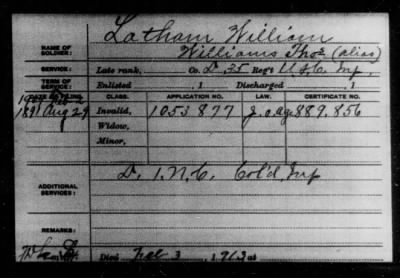 Latham William
NAME OF SOLDIER: Williams Thos (alias)
SERVICE: Late rank, Co. D. 35 Reg't U.S.C. Inf.,
TERM OF SERVICE: Enlisted , 1 Discharged , 1
DATE OF FILING. CLASS. APPLICATION NO. LAW. CERTIFICATE NO.
1891 Aug 29 Invalid, 1053877 889.856
Widow,
Minor,
ADDITIONAL SERVICES: D. 1. N.C. Col'd Inf
REMARKS:
Died Feb 3, 1913 at